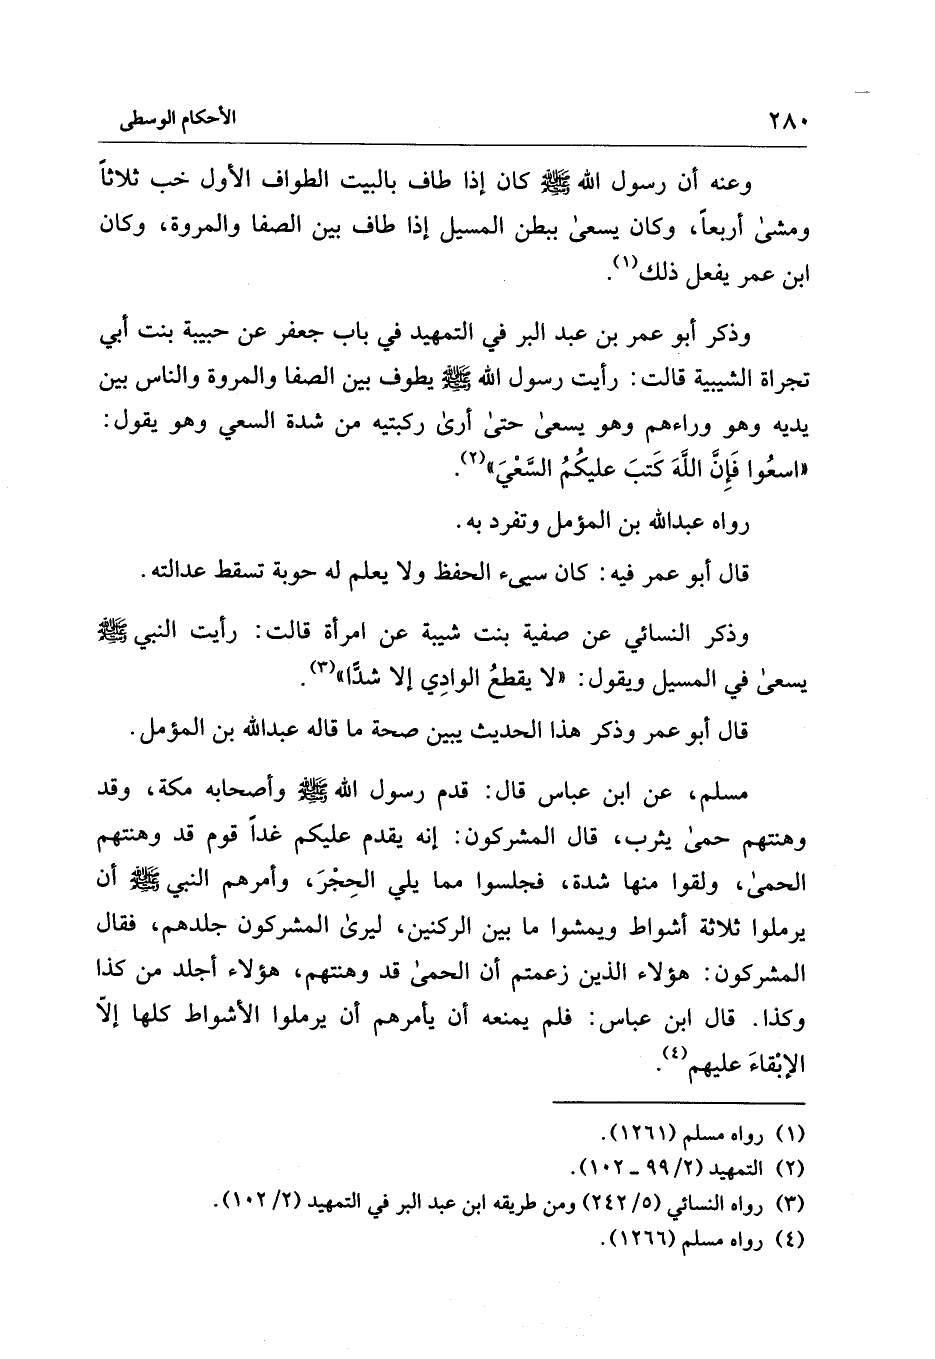 ٢٨٠ الأحكام الوسطى
وعنه أن رسول الله ﷺ كان إذا طاف بالبيت الطواف الأول خب ثلاثاً
ومشىٰ أربعاً، وكان يسعىٰ ببطن المسيل إذا طاف بين الصفا والمروة، وكان
ابن عمر يفعل ذلك(١).
وذكر أبو عمر بن عبد البر في التمهيد في باب جعفر عن حبيبة بنت أبي
تجراة الشيبية قالت: رأيت رسول الله ﷺ يطوف بين الصفا والمروة والناس بين
يديه وهو وراءهم وهو يسعىٰ حتىٰ أرىٰ ركبتيه من شدة السعي وهو يقول:
«اسعُوا فَإِنَّ اللَّهَ كَتبَ عليكُمُ السَّعْيَ»(٢).
رواه عبدالله بن المؤمل وتفرد به.
قال أبو عمر فيه: كان سيىء الحفظ ولا يعلم له حوبة تسقط عدالته.
وذكر النسائي عن صفية بنت شيبة عن امرأة قالت: رأيت النبي ﷺ
يسعىٰ في المسيل ويقول: «لا يقطعُ الوادِي إلا شدًّا»(٣).
قال أبو عمر وذكر هذا الحديث يبين صحة ما قاله عبدالله بن المؤمل.
مسلم، عن ابن عباس قال: قدم رسول الله ﷺ وأصحابه مكة، وقد
وهنتهم حمىٰ يثرب، قال المشركون: إنه يقدم عليكم غداً قوم قد وهنتهم
الحمىٰ، ولقوا منها شدة، فجلسوا مما يلي الحِجْرَ، وأمرهم النبي ﷺ أن
يرملوا ثلاثة أشواط ويمشوا ما بين الركنين، ليرىٰ المشركون جلدهم، فقال
المشركون: هؤلاء الذين زعمتم أن الحمىٰ قد وهنتهم، هؤلاء أجلد من كذا
وكذا. قال ابن عباس: فلم يمنعه أن يأمرهم أن يرملوا الأشواط كلها إلاّ
الإبْقاءَ عليهم(٤).
(١) رواه مسلم (١٢٦١).
(٢) التمهيد (٢/ ٩٩ ـ ١٠٢).
(٣) رواه النسائي (٥/ ٢٤٢) ومن طريقه ابن عبد البر في التمهيد (٢/ ١٠٢).
(٤) رواه مسلم (١٢٦٦).